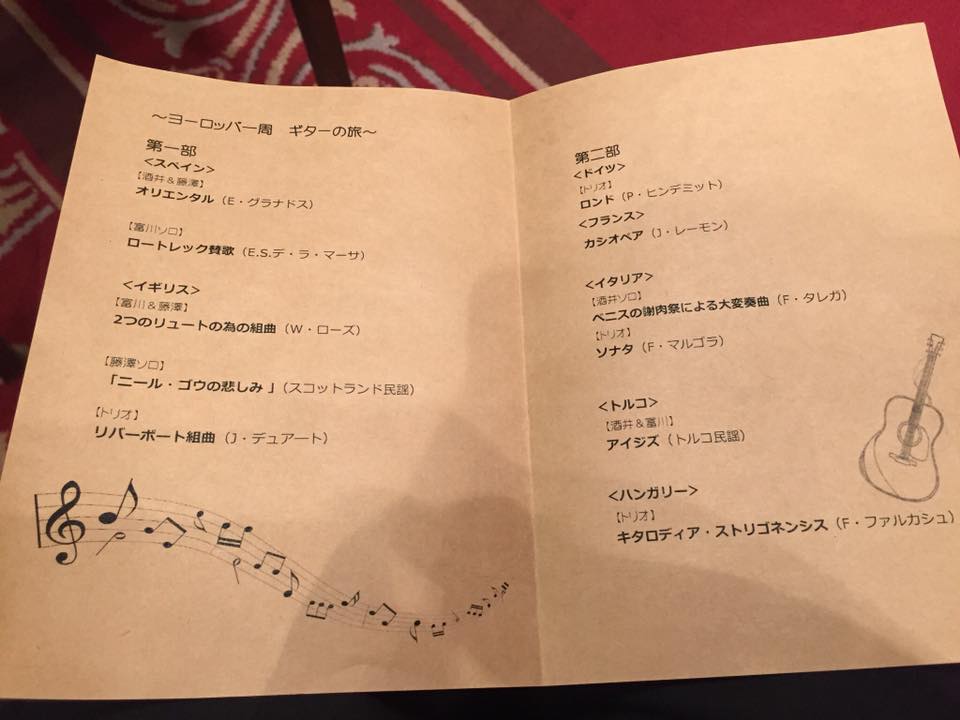 ～ヨーロッパ一周　ギターの旅～
第一部
<スペイン>
【酒井＆藤澤】
オリエンタル（E・グラナドス）
【富川ソロ】
ロートレック賛歌（E.S.デ・ラ・マーサ）
<イギリス>
【富川＆藤澤】
2つのリュートの為の組曲（W・ローズ）
【藤澤ソロ】
「ニール・ゴウの悲しみ 」（スコットランド民謡）
【トリオ】
リバーボート組曲（J・デュアート）
第二部
<ドイツ>
【トリオ】
ロンド（P・ヒンデミット）
<フランス>
カシオペア（J・レーモン）
<イタリア>
【酒井ソロ】
ベニスの謝肉祭による大変奏曲（F・タレガ）
【トリオ】
ソナタ（F・マルゴラ）
<トルコ>
【酒井＆富川】
アイジズ（トルコ民謡）
<ハンガリー>
【トリオ】
キタロディア・ストリゴネンシス（F・ファルカシュ）